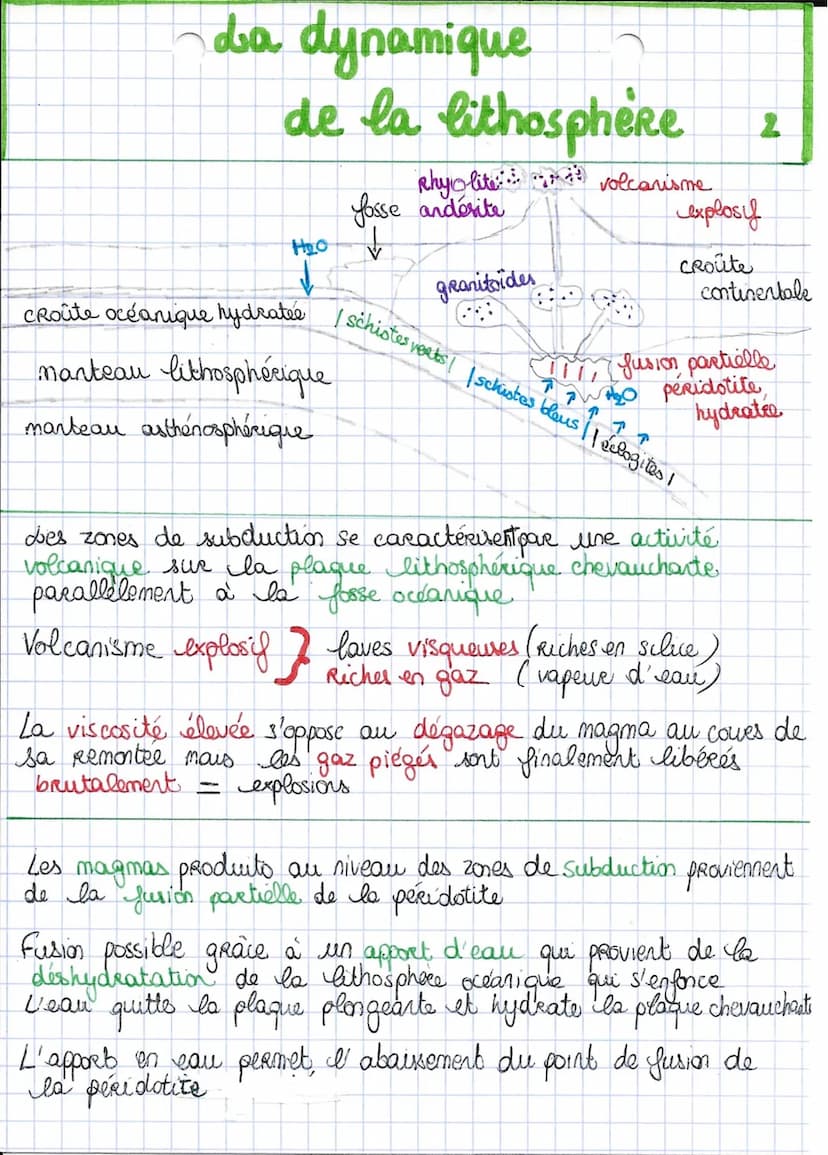 La dynamique
de la lithosphère 2
Rhyolite
andésite
volcanisme
explosif
fosse
H2O
croûte
continentale
granitoïdes
croûte océanique hydratée
/ schistes verts /
fusion partielle
péridotite
hydratée
manteau lithosphérique
/ schistes bleus /
H2O
manteau asthénosphérique
/ éclogites /
Les zones de subduction se caractérisent par une activité
volcanique sur la plaque lithosphérique chevauchante
parallèlement à la fosse océanique
Volcanisme explosif } laves visqueuses (riches en silice)
Riches en gaz (vapeur d'eau)
La viscosité élevée s'oppose au dégazage du magma au cours de
sa remontée mais les gaz piégés sont finalement libérés
brutalement = explosions
Les magmas produits au niveau des zones de subduction proviennent
de la fusion partielle de la péridotite
Fusion possible grâce à un apport d'eau qui provient de la
déshydratation de la lithosphère océanique qui s'enfonce
L'eau quitte la plaque plongeante et hydrate la plaque chevauchante
L'apport en eau permet l'abaissement du point de fusion de
la péridotite